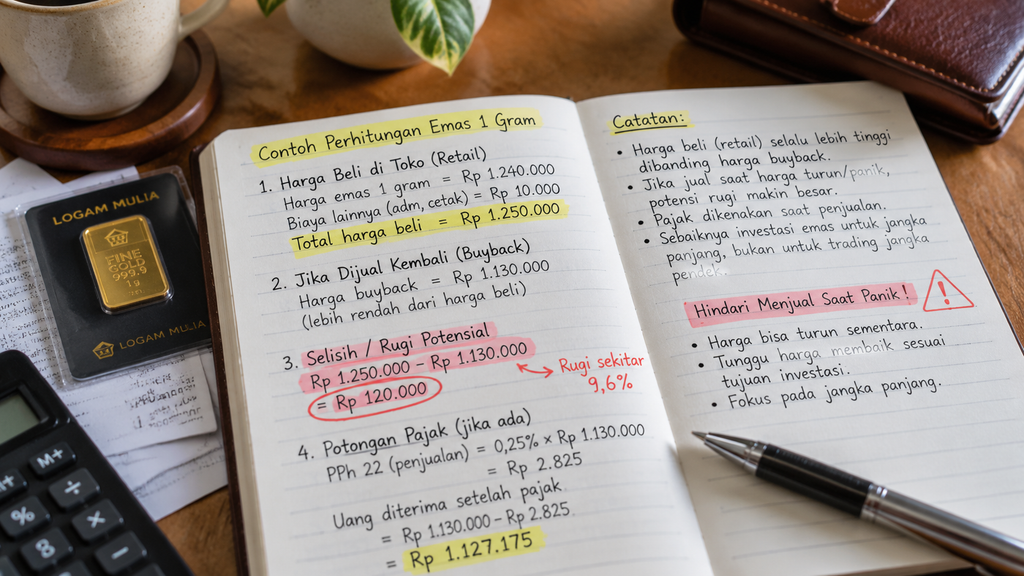 LOGAM MULIA
FINE
GOLD
999.9
1g
LOGAM MULIA
M+
÷
%
×
8
−
Contoh Perhitungan Emas 1 Gram
1. Harga Beli di Toko (Retail)
Harga emas 1 gram = Rp 1.240.000
Biaya lainnya (adm, cetak) = Rp 10.000
Total harga beli = Rp 1.250.000
2. Jika Dijual Kembali (Buyback)
Harga buyback = Rp 1.130.000
(lebih rendah dari harga beli)
3. Selisih / Rugi Potensial
Rp 1.250.000 - Rp 1.130.000
= Rp 120.000
Rugi sekitar
9,6%
4. Potongan Pajak (jika ada)
PPh 22 (penjualan) = 0,25% × Rp 1.130.000
= Rp 2.825
Uang diterima setelah pajak
= Rp 1.130.000 - Rp 2.825
= Rp 1.127.175
Catatan:
• Harga beli (retail) selalu lebih tinggi
dibanding harga buyback.
• Jika jual saat harga turun/panik,
potensi rugi makin besar.
• Pajak dikenakan saat penjualan.
• Sebaiknya investasi emas untuk jangka
panjang, bukan untuk trading jangka
pendek.
Hindari Menjual Saat Panik!
!
• Harga bisa turun sementara.
• Tunggu harga membaik sesuai
tujuan investasi.
• Fokus pada jangka panjang.